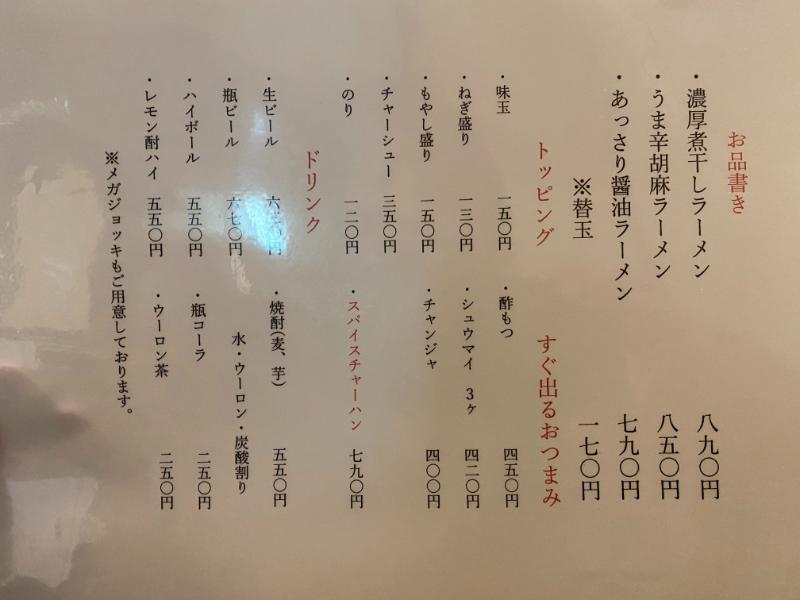 お品書き
・濃厚煮干しラーメン 八九〇円
・うま辛胡麻ラーメン 八五〇円
・あっさり醤油ラーメン 七九〇円
※替玉 一七〇円
トッピング
・味玉 一五〇円
・ねぎ盛り 一三〇円
・もやし盛り 一五〇円
・チャーシュー 三五〇円
・のり 一二〇円
すぐ出るおつまみ
・酢もつ 四五〇円
・シュウマイ 3ヶ 四二〇円
・チャンジャ 四〇〇円
・スパイスチャーハン 七九〇円
ドリンク
・生ビール
・瓶ビール 六七〇円
・ハイボール 五五〇円
・レモン酎ハイ 五五〇円
・焼酎(麦、芋) 五五〇円
水・ウーロン・炭酸割り
・瓶コーラ 二五〇円
・ウーロン茶 二五〇円
※メガジョッキもご用意しております。